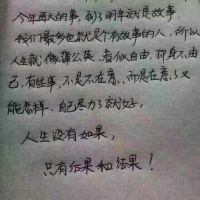 今年再大的事，到了明年就是故事，
我们最多也就是个有故事的人，所以
人生就像蒲公英，看似自由，却身不由
己，有些事，不是不在意，而是在意了又
能怎样，自己尽力了就好，
人生没有如果，
只有后果和结果！